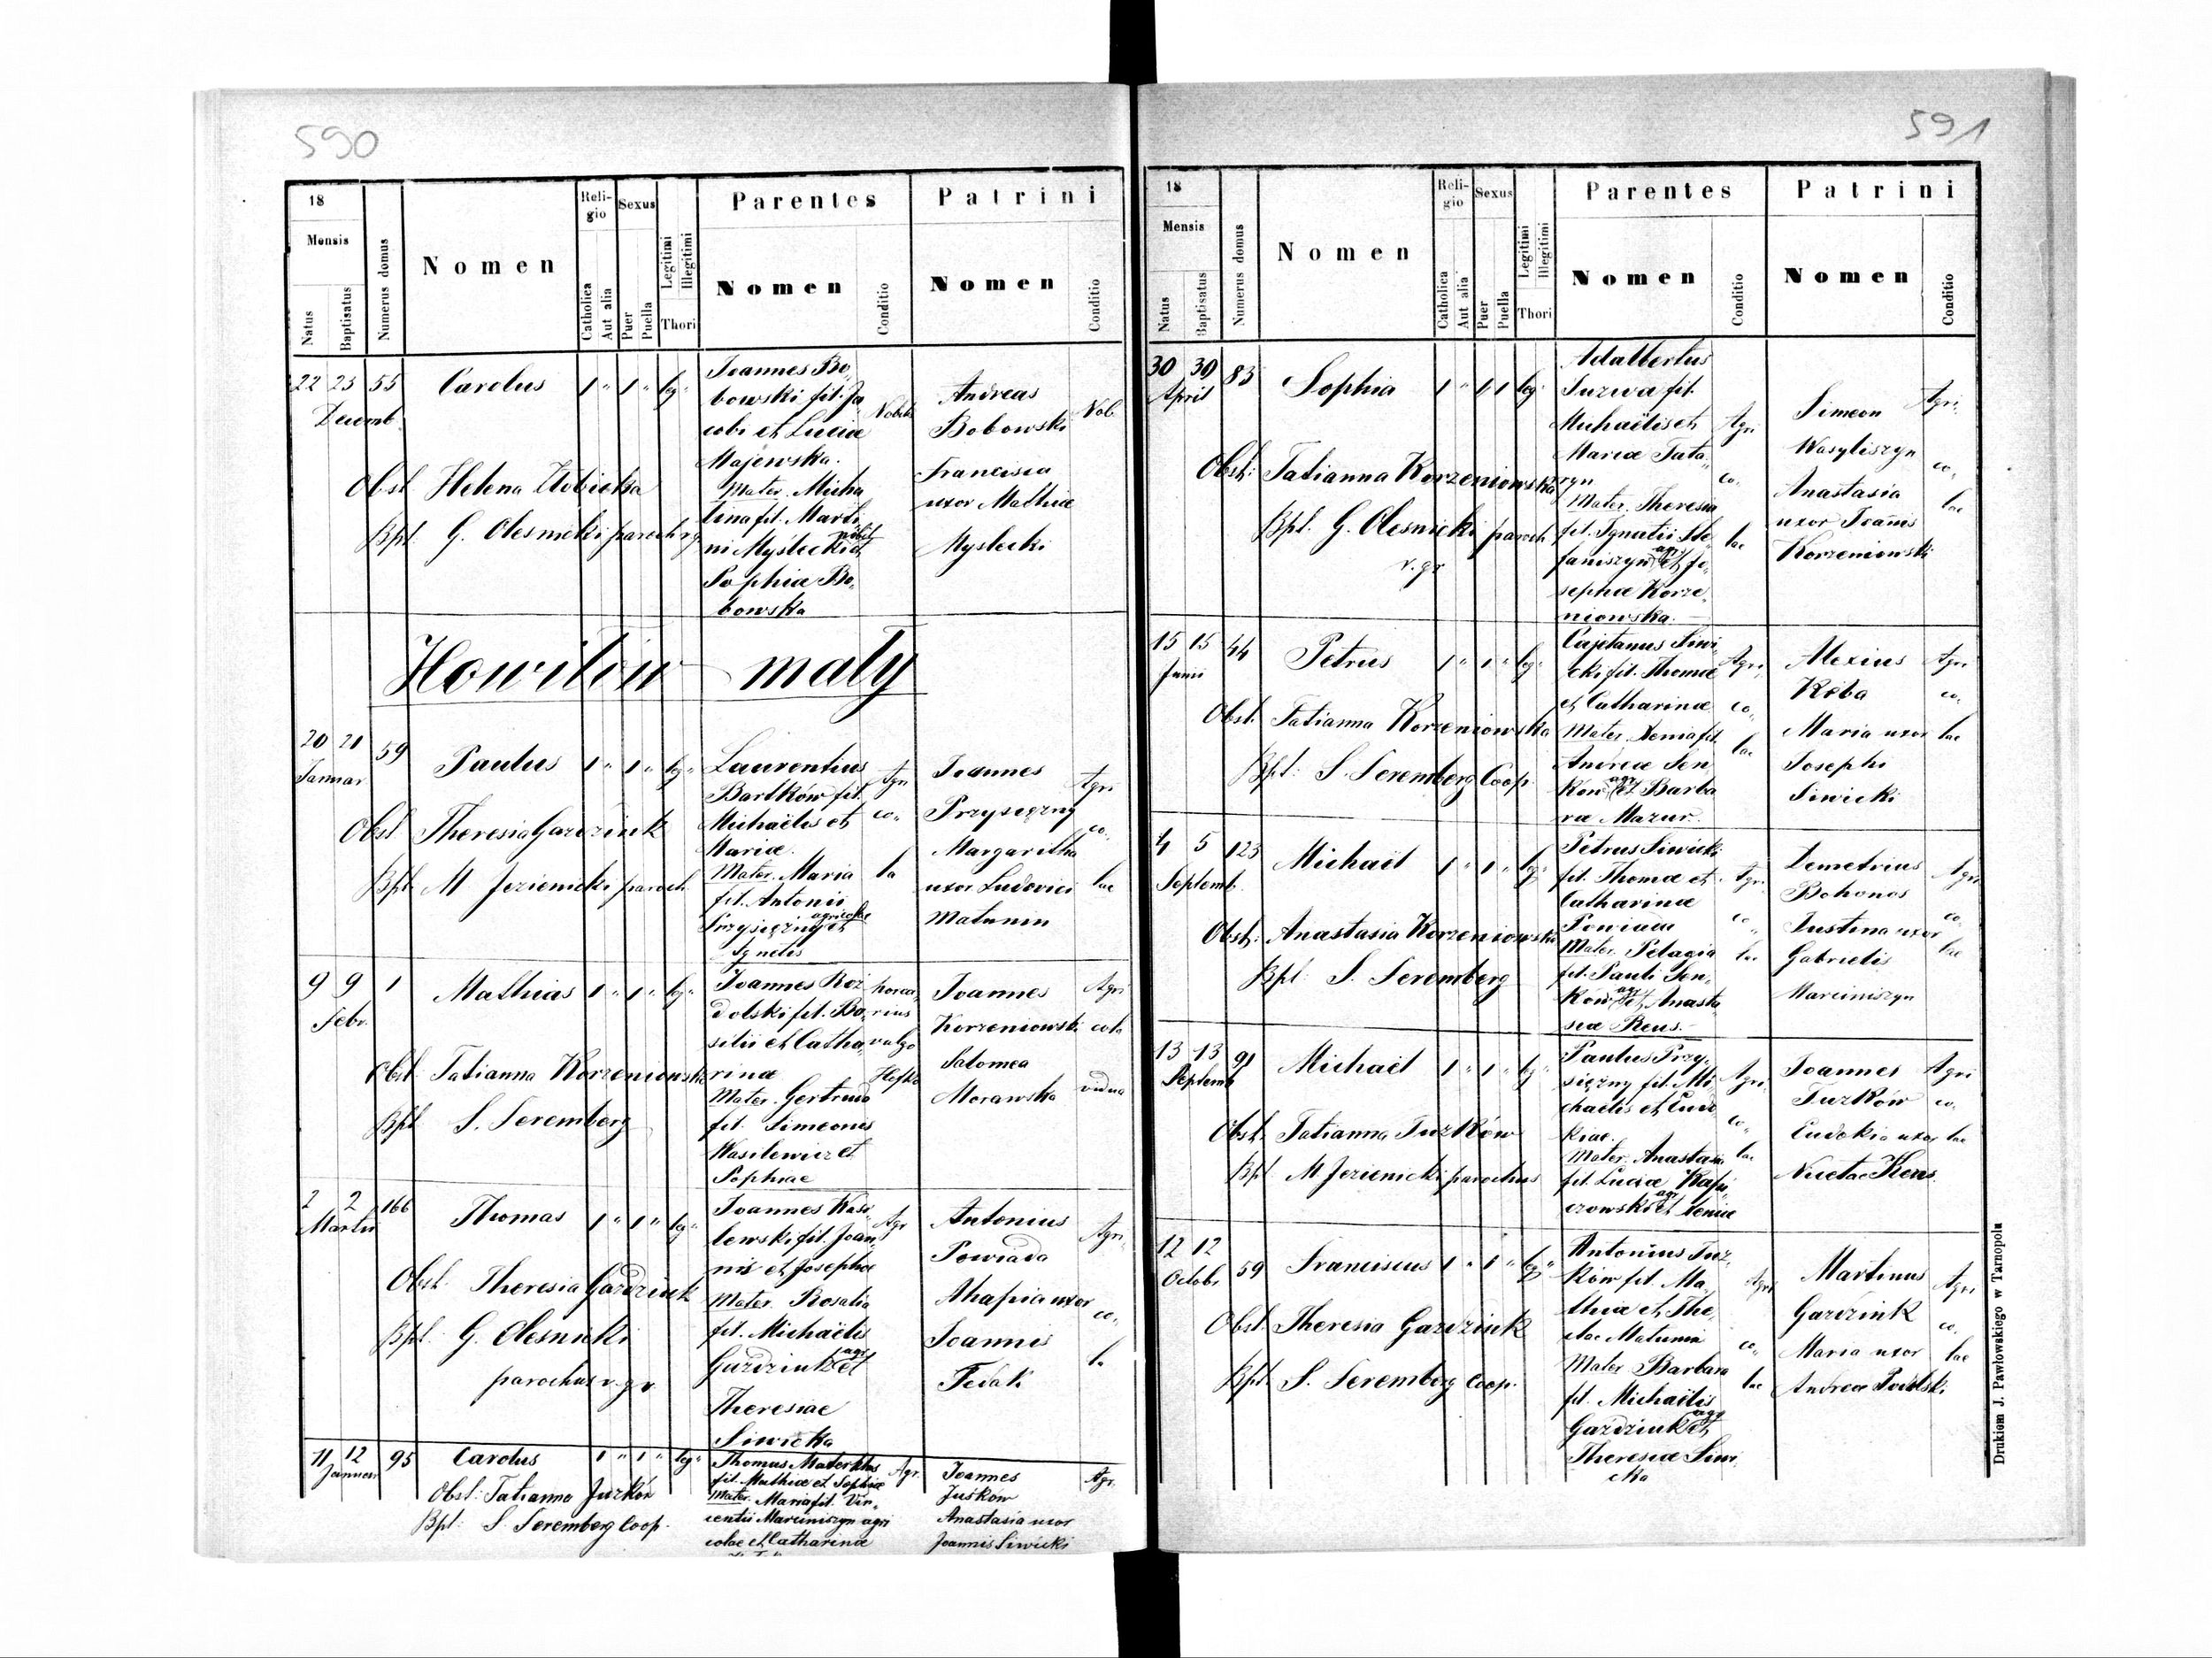 590
18
Mensis
Natus
Baptisatus
Numerus domus
Nomen
Religio
Catholica
Aut alia
Sexus
Puer
Puella
Legitimi
Illegitimi
Thori
Parentes
Nomen
Conditio
Patrini
Nomen
Conditio
22 23 55 Carolus 1 " 1 " leg"
Decemb.
Obst Helena
Bpt. G. Olesnicki paroch rg
Joannes Bo,
bowski fil. Ja
cobi et Luciæ
Majewska.
Mater. Micha
lina fil. Marti,
ni Myślecki nobil. et
Sophiæ Bo,
bowska
Nobilis
Andreas
Bobowski
Francisca
uxor Mathiæ
Myslecki
Nob.
Howiłów mały
20 21 59 Paulus 1 " 1 " leg"
Januar
Obst Theresia Gardziuk
Bpt. M Jezienicki paroch.
Laurentius
Bartków fil.
Michaëlis et
Mariæ.
Mater. Maria
fil. Antonii
Przysięzny agricolæ et
Agnetis
Agri
co"
la
Joannes
Przysięzny
Margaritha
uxor Ludovici
Matunin
Agri
co"
lae
9 9 1 Mathias 1 " 1 " leg"
Febr.
Obst. Tatianna Korzeniowska
Bpt S. Seremberg
Joannes Roz
dolski fil. Ba,
silii et Catha,
rinæ
Mater. Gertruda
fil. Simeonis
Wasilewicz et
Sophiae
vulgo
Joannes
Korzeniowski
Salomea
Morawska
Agri
cola
vidua
2 2 166 Thomas 1 " 1 " leg"
Martii
Obst Theresia Gardziuk
Bpt. G. Olesnicki
parochus r. gr.
Joannes Kase
lewski fil. Joan,
nis et Josephæ
Mater. Rosalia
fil. Michaëlis
Gardziuk agr. et
Theresiae
Siwicka
Agr
Antonius
Powiada
Ahapia uxor
Joannis
Fedak
Agri,
co,
la
11 12 95 Carolus 1 " 1 " leg"
Januar
Obst: Tatianna Jużków
Bpt: S Seremberg Coop.
Thomas
fil. Mathiæ et Sophiæ
Mater. Maria fil. Vin,
centii Marciniszyn agri
colae et Catharinæ
Agr.
Joannes
Juśkow
Anastasia uxor
Joannis Siwicki
Agr.
591
18
Mensis
Natus
Baptisatus
Numerus domus
Nomen
Religio
Catholica
Aut alia
Sexus
Puer
Puella
Legitimi
Illegitimi
Thori
Parentes
Nomen
Conditio
Patrini
Nomen
Conditio
30 30 83 Sophia 1 " " 1 leg"
April
Obst: Tatianna Korzeniowska
Bpt. G. Olesnicki paroch
r. gr
Adalbertus
fil.
Michaëlis et
Mariæ Tata,
ryn
Mater. Theresia
fil. Ignatii Ste
faniszyn agr. et Jo,
sephæ Korze,
niowska.
Agri
co,
lae
Simeon
Wasyliszyn
Anastasia
uxor Joanis
Korzeniowski
Agri,
co,
lae
15 15 44 Petrus 1 " 1 " leg"
Junii
Obst. Tatianna Korzeniowska
Bpt. S. Seremberg Coop.
Cajetanus Siwi,
cki fil. Thomæ
et Catharinæ
Mater. Xenia fil.
Andreæ Sen,
ków agr. et Barba
ræ Mazur.
Agri,
co,
lae
Alexius
Maria uxor
Josephi
Siwicki
Agri
co,
lae
4 5 123 Michaël 1 " 1 " leg"
Septemb.
Obst: Anastasia Korzeniowska
Bpt: S. Seremberg
Petrus Siwicki
fil. Thomæ et
Catharinæ
Powiada
Mater. Pelagia
fil. Pauli Sen,
ków agr. et Anasta
siæ Reus.
Agri
co,
lae
Demetrius
Bohonos
Justina uxor
Gabrielis
Marciniszyn
Agri
co,
lae
13 13 91 Michaël 1 " 1 " leg"
Septemb
Obst. Tatianna Juzków
Bpt M Jezienicki parochus
Paulus Przy,
sięzny fil. Mi,
chaëlis et Eudo
kiae.
Mater. Anastasia
fil. Lucæ
agr. et Xeniæ
Agri,
co,
lae
Joannes
Juzków
Eudokia uxor
Nicetae
Agri
co,
lae
12 12 59 Franciscus 1 " 1 " leg"
Octobr.
Obst. Theresia Gardziuk
Bpt. S. Seremberg Coop.
Antonius Juz,
ków fil. Ma,
thiæ et The,
clae Matunin
Mater Barbara
fil. Michaëlis
Gardziuk agr. et
Theresiæ Siwi,
cka
Agri
co,
lae
Martinus
Gardziuk
Maria uxor
Andreæ Podolski
Agri
co,
lae
Drukiem J. Pawłowskiego w Tarnopolu